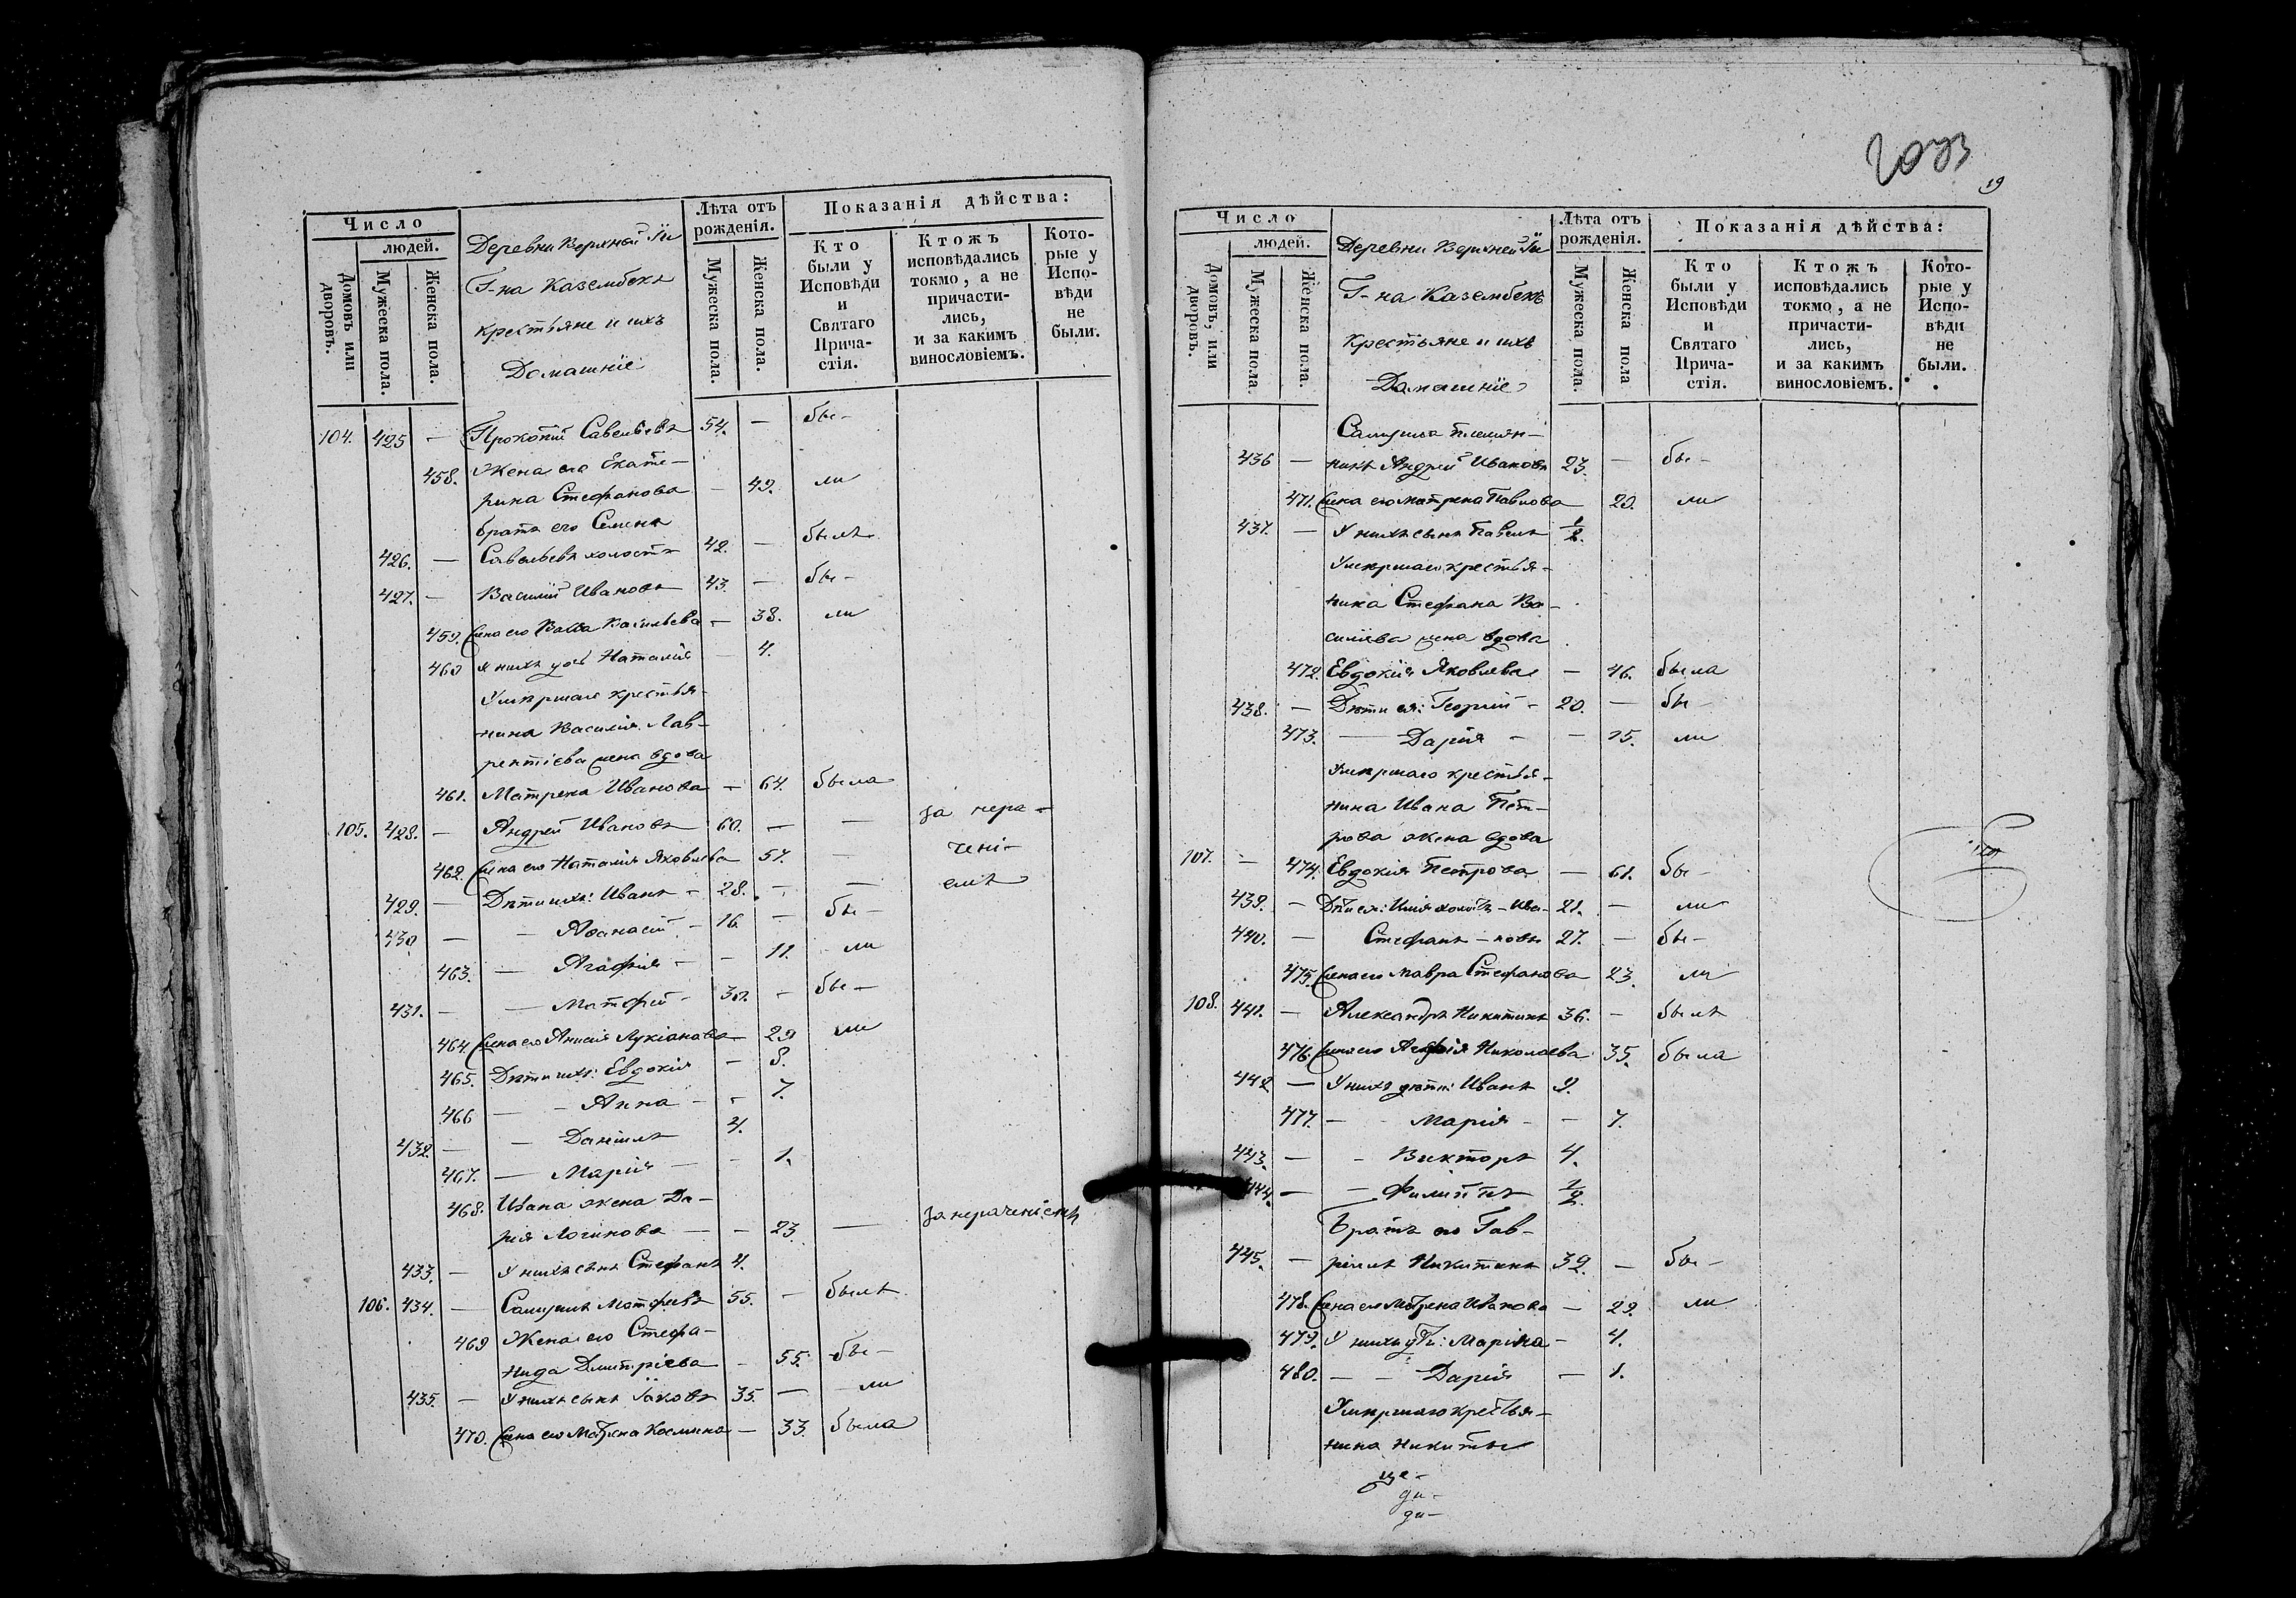 Число
людей.
Домовъ или дворовъ.
Мужеска пола.
Женска пола.
Деревни Верхней
Г-на Казембека
крестьяне и ихъ
Домашніе
Лѣта отъ рожденія.
Мужеска пола.
Женска пола.
Показанія дѣйства:
Кто были у Исповѣди и Святаго Прича- стія.
Ктожъ исповѣдались токмо, а не причасти- лись, и за какимъ винословіемъ.
Кото- рые у Испо- вѣди не были.
104. 425 — Прокопій Савельевъ 54. — бы-
458. Жена его Екате-
рина Стефанова — 49. ли
братъ его Семенъ
426. — Савельевъ холостъ 42. — былъ
427. — Василій Ивановъ 43. — бы-
459. Жена его Васса Васильева — 38. ли
460 у нихъ дочь Наталія — 4.
Умершаго крестья-
нина Василія Лав-
рентіева жена вдова
461. Матрена Иванова — 64. была
105. 428. — Андрей Ивановъ 60. — — за нера-
462. Жена его Наталія Яковлева 57. — чені-
429. — Дѣти ихъ: Иванъ - 28. — — емъ
430 — - Афанасій - 16. — бы-
463. — Агафія - - 11. ли
431. — — Матфей - 30. - бы-
464 Жена его Анисія Лукіанова - 29 ли
465. Дѣти ихъ: Евдокія — 8.
466 — - Анна - - 7.
432. — - Даніилъ 4.
467. — Марія — - 1.
468. Ивана жена Да-
рія Логинова — - 23. — за нераченіемъ
433. — У нихъ сынъ Стефанъ 4.
106. 434. — Самуилъ Матфеевъ 55. — былъ
469 Жена его Стефа-
нида Димитріева — 55. бы-
435. — У нихъ сынъ Іаковъ 35. — ли
470. Жена его Матрена Космина — 33. была
19
Число
людей.
Домовъ, или дворовъ.
Мужеска пола.
Женска пола.
Деревни Верхней
Г-на Казембека
Крестьяне и ихъ
Домашніе
Лѣта отъ рожденія.
Мужеска пола.
Женска пола
Показанія дѣйства:
Кто были у Исповѣди и Святаго Прича- стія.
Ктожъ исповѣдались токмо, а не причасти- лись, и за какимъ винословіемъ.
Кото- рые у Испо- вѣди не были.
Самуила племян-
436 — никъ Андрей Ивановъ 23. — бы-
471. Жена его Матрена Павлова 20. ли
437. — У нихъ сынъ Павелъ 1/2.
Умершаго крестья-
нина Стефана Ва-
силіева жена вдова
472. Евдокія Яковлева — 46. была
438. — Дѣти ея: Георгій - 20. — бы-
473. — Дарія - - 15. ли
Умершаго крестья-
нина Ивана Пет-
рова жена вдова
107. — 474. Евдокія Петрова — 61. бы-
439. — Дѣти ея: Илія холостъ - Ива- 21. — ли
440. — Стефанъ - новы 27. — бы-
475. Жена его Мавра Стефанова 23. ли
108. 441. — Александръ Никитинъ 36. - былъ
476. Жена его Агафія Николаева 35. была
442 — У нихъ дѣти: Иванъ 9.
477. - - Марія - - 7.
443. — - Викторъ 4.
444. — — Филиппъ 1/2.
Братъ его Гав-
445. — ріилъ Никитинъ 39. — бы-
478. Жена его Матрена Иванова — 29. ли
479. У нихъ дѣти: Марина - 4.
480. — - Дарія — 1.
Умершаго крестья-
нина Никиты